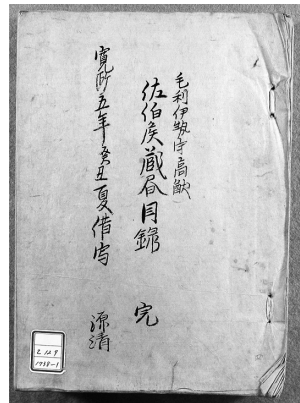 毛利伊勢守高敏
佐伯侯蔵書目録　完
寛政五年癸丑夏借写　源清
2.129
1938-1